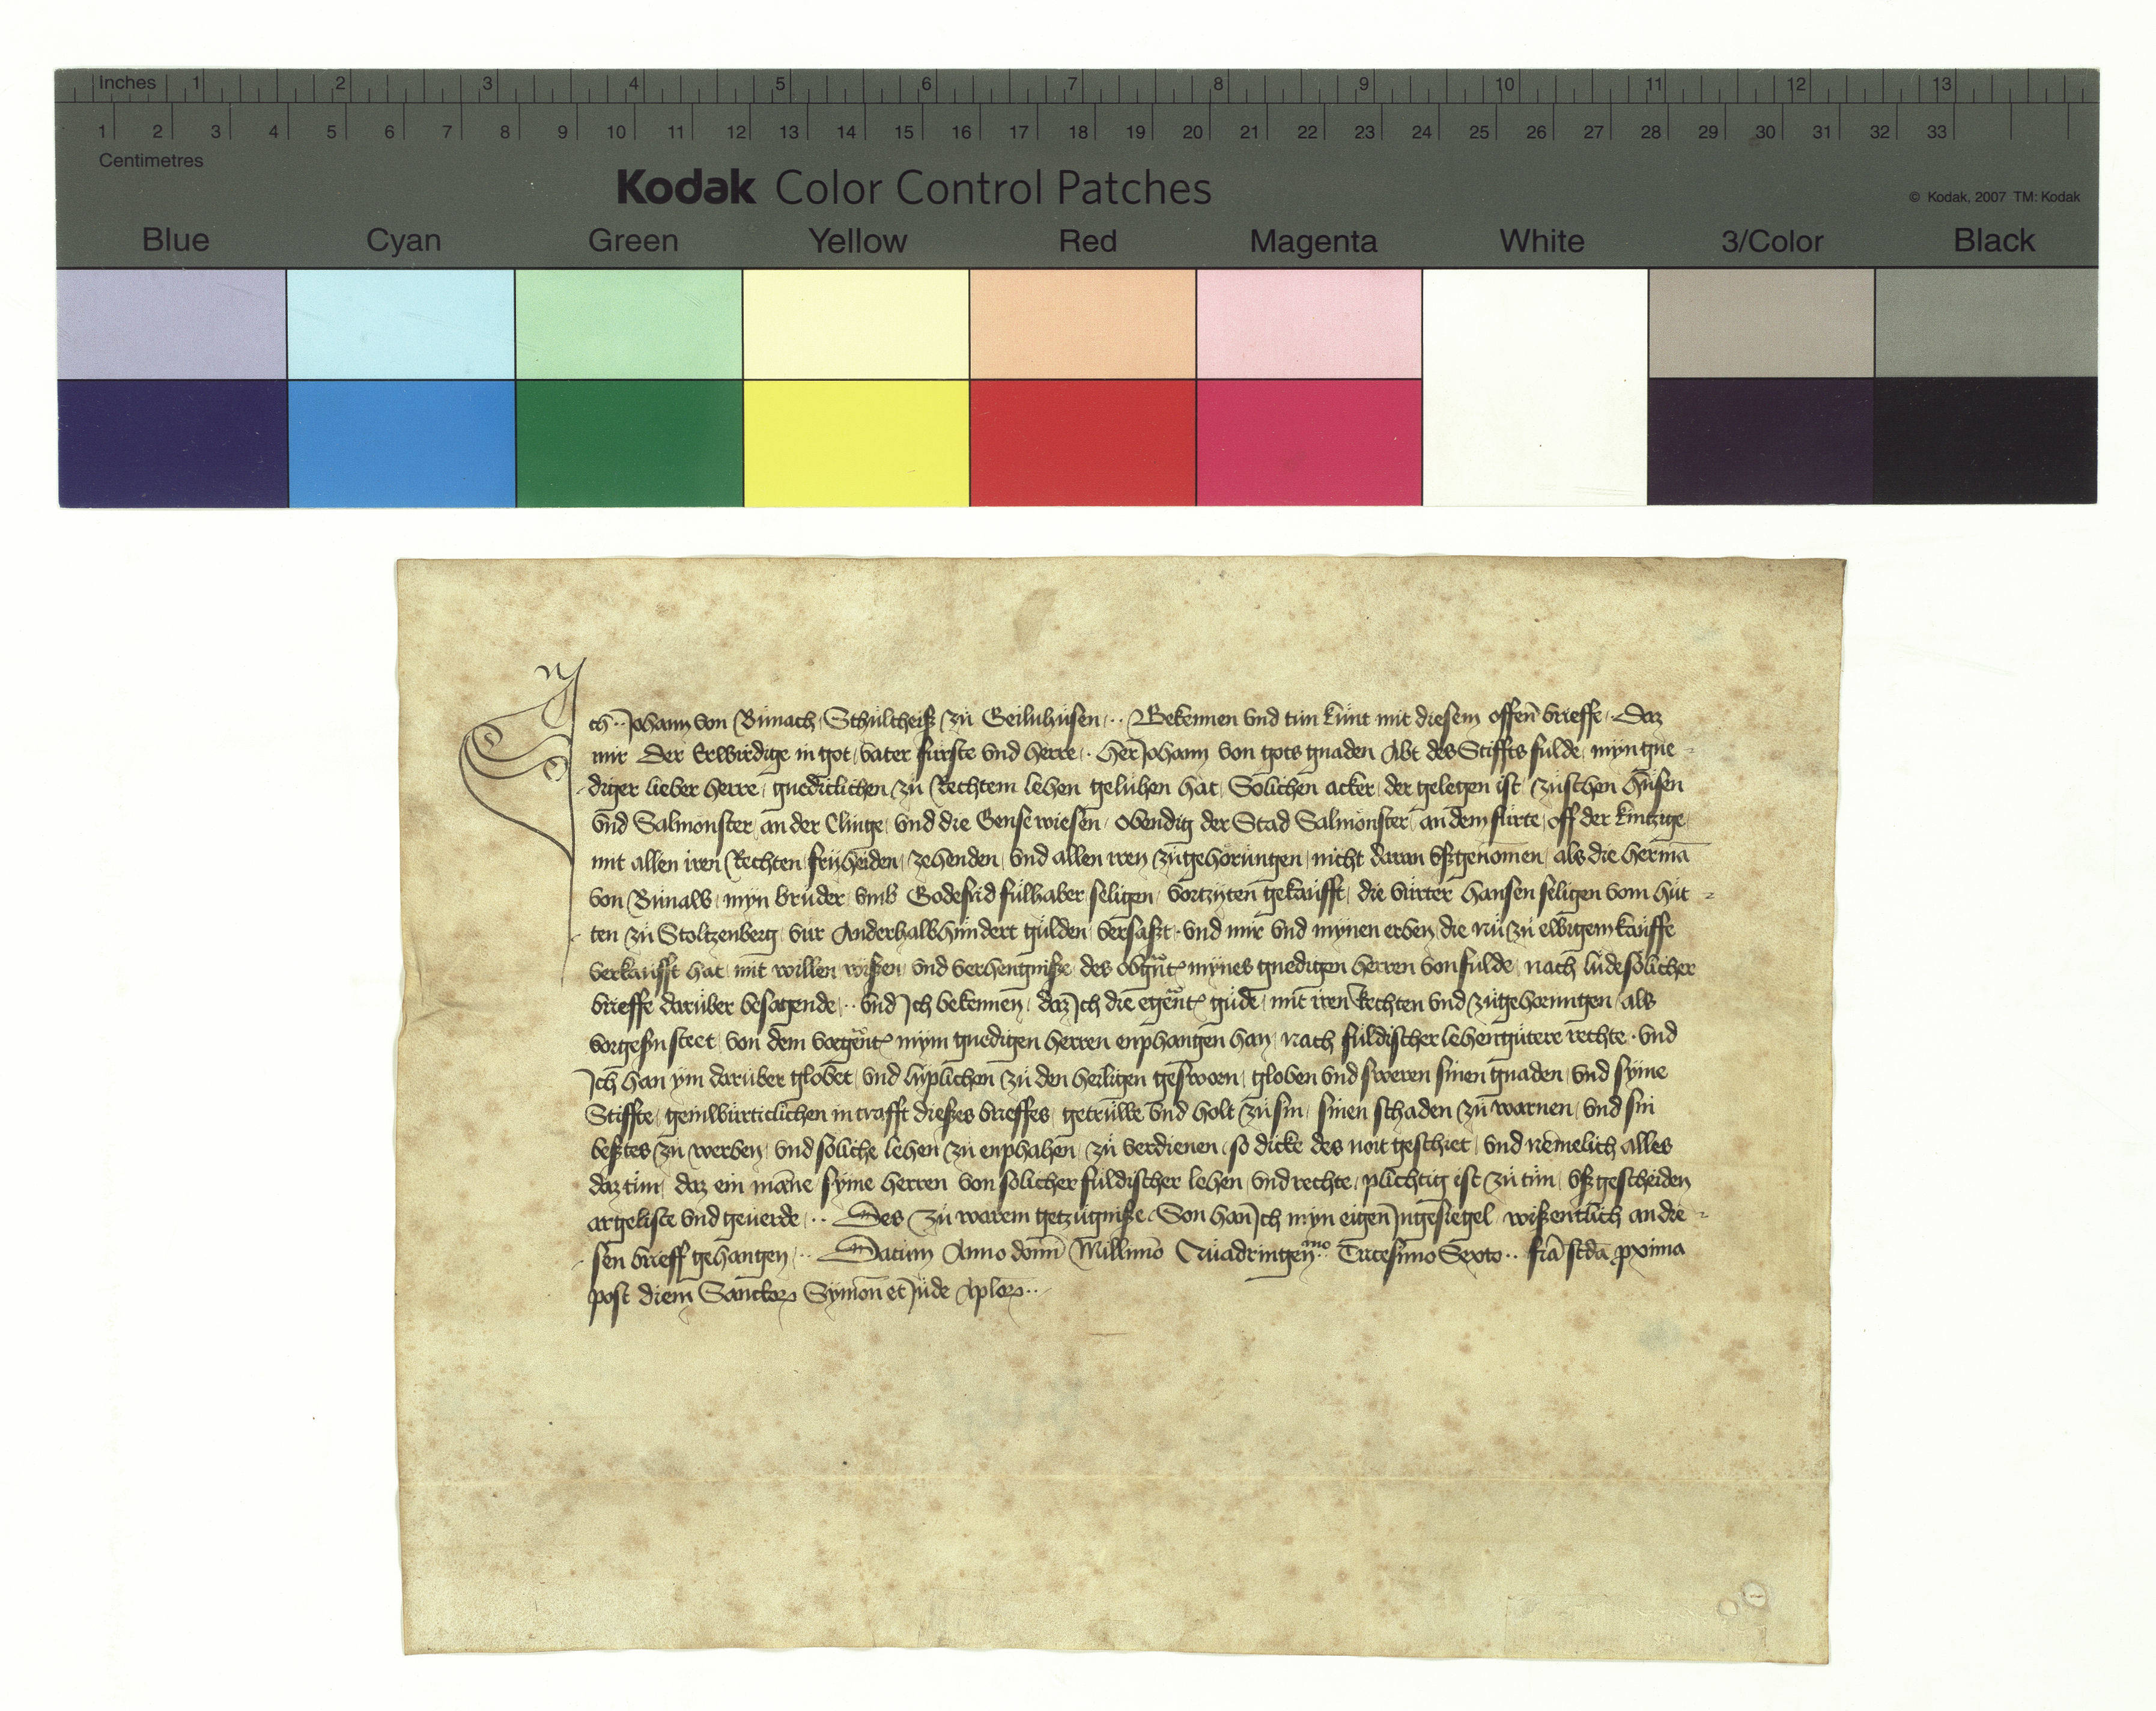 Inches 1 2 3 4 5 6 7 8 9 10 11 12 13
1 2 3 4 5 6 7 8 9 10 11 12 13 14 15 16 17 18 19 20 21 22 23 24 25 26 27 28 29 30 31 32 33
Centimetres
Kodak Color Control Patches
© Kodak, 2007 TM: Kodak
Blue Cyan Green Yellow Red Magenta White 3/Color Black
Ich ·· Johann von Bünach Schültheiß zü Geilnhüsen ·· Bekennen vnd tün künt mit diesem offen̄ brieffe · Daz
mir Der Erwirdige in got vater fürste vnd herre · her Johann von gots gnaden Abt des Stiffts fulde myn gne-
diger lieber herre gnediclichen zü Rechtem lehen gelühen hat Solichen acker der gelegen ist züschen hüsen
vnd Salmonster an der Clinge vnd die Gensewiesen obendig der Stad Salmonster an dem fürte off der kintzige
mit allen iren Rechten früheiden zehenden vnd allen iren zügehorüngen nicht daran vßgenomen als die hermā
von Bünaw myn brüder vmb Godefrid fülhaber seligen vortzyten gekaüfft die vürter hansen seligen vom hüt-
ten zü Stoltzenberg vür Anderhalbhündert gülden versaßt vnd mir vnd mynen erben die nü zü ewigem kaüffe
verkaüfft hat mit willen wißen vnd verhengniße des obgnt̄ mynes gnedigen herren von fulde nach lüde solicher
brieffe darüber besagende ·· vnd Ich bekennen daz Ich die egent̄ güde mit iren Rechten vnd zügehorüngen als
vorgesn̄ steet von dem vorgent̄ mym gnedigen herren enphangen han nach füldischer lehengütere rechte · vnd
Ich han ym darüber globet vnd lyplichen zü den heiligen gesworn globen vnd sweren sinen gnaden vnd syme
Stiffte geinwürticlichen in crafft dießes brieffes getrüwe vnd holt zü sin sinen schaden zü warnen vnd sin
beßtes zü werben vnd soliche lehen zü enphahen zü verdienen so dicke des noit geschiet vnd nemelich alles
daz tün daz ein māne syme herren von solicher füldischer lehen vnd rechte plichtig ist zü tün vßgescheiden
argeliste vnd geuerde ·· Des zü warem getzügniße Son han Ich myn eigen Ingesiegel wißentlich an die-
sen brieff gehangen ·· Datum Anno domī Millimo Quadringenmo Tricesimo Sexto ·· fr̄ia scd̄a pxima
post diem Sanctorꝝ Symon̄ et Jüde Aplorꝝ ··